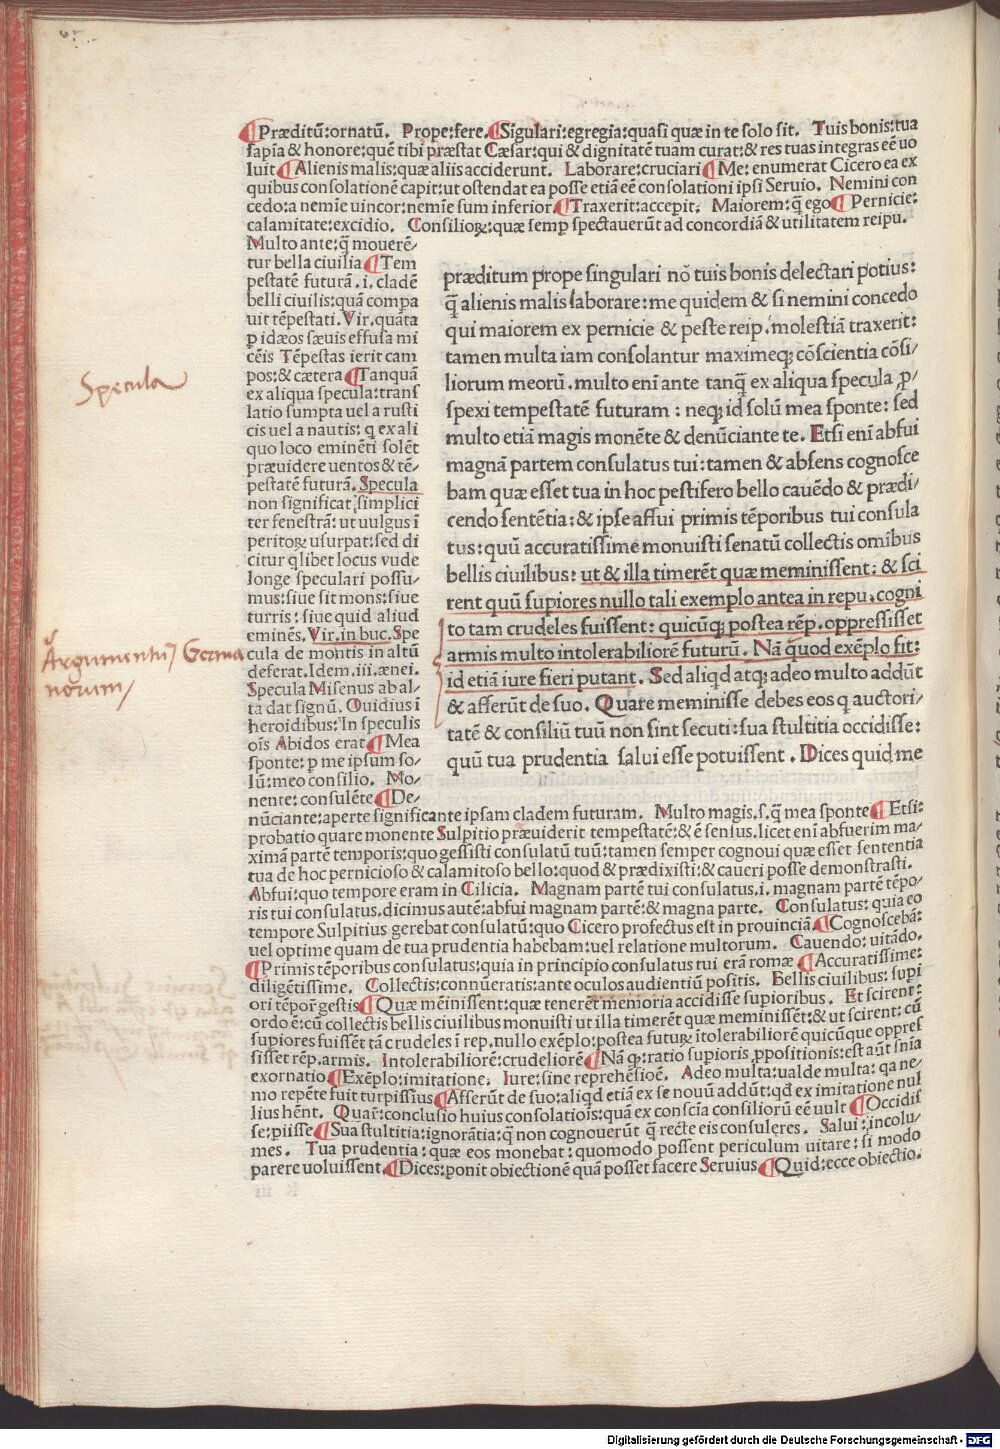 ¶Præditū: ornatū. Prope: fere. ¶Sigulari: egregia: quasi quæ in te solo sit. Tuis bonis: tua
sapīa & honore: quē tibi præstat Cæsar: qui & dignitatē tuam curat: & res tuas integras eē uo
luit ¶Alienis malis: quæ aliis acciderunt. Laborare: cruciari ¶Me: enumerat Cicero ea ex
quibus consolationē capit: ut ostendat ea posse etiā eē consolationi ipsi Seruio. Nemini con
cedo: a nemīe uincor: nemīe sum inferior ¶Traxerit: accepit. Maiorem: q̄ ego ¶Pernicie:
calamitate: excidio. Consilioꝝ: quæ semp spectauerūt ad concordiā & utilitatem reipu.
Multo ante: q̄ mouerē/
tur bella ciuilia ¶Tem
pestatē futurā .i. cladē
belli ciuilis: quā compa
uit tēpestati. Vir. quāta
p idæos sæuis effusa mi
cēis Tēpestas ierit cam
pos: & cætera ¶Tanquā
ex aliqua specula: trans
latio sumpta uel a rusti
cis uel a nautis: q ex ali
quo loco eminēti solēt
præuidere uentos & tē/
pestatē futurā. Specula
non significat simplici
ter fenestrā: ut uulgus ī
peritoꝝ usurpat: sed di
citur qlibet locus vnde
longe speculari possu/
mus: siue sit mons: siue
turris: siue quid aliud
eminēs. Vir. in buc. Spe
cula de montis in altū
deferat. Idem .iii. ænei.
Specula Misenus ab al/
ta dat signū. Ouidius ī
heroidibus: In speculis
oīs Abidos erat ¶Mea
sponte: p me ipsum so/
lū: meo consilio. Mo/
nente: consulēte ¶De/
præditum prope singulari nō tuis bonis delectari potius:
q̄ alienis malis laborare: me quidem & si nemini concedo
qui maiorem ex pernicie & peste reip. molestiā traxerit:
tamen multa iam consolantur maximeqꝫ cōscientia cōsi/
liorum meorū. multo enī ante tanq̄ ex aliqua specula ꝓ/
spexi tempestatē futuram: neqꝫ id solū mea sponte: sed
multo etiā magis monēte & denūciante te. Etsi enī abfui
magnā partem consulatus tui: tamen & absens cognosce
bam quæ esset tua in hoc pestifero bello cauēdo & prædi/
cendo sentētia: & ipse affui primis tēporibus tui consula
tus: quū accuratissime monuisti senatū collectis omībus
bellis ciuilibus: ut & illa timerēt quæ meminissent: & sci
rent quū supiores nullo tali exemplo antea in repu. cogni
to tam crudeles fuissent: quicūqꝫ postea rēp. oppressisset
armis multo intolerabiliorē futurū. Nā quod exēplo fit:
id etiā iure fieri putant. Sed aliqd atqꝫ adeo multo addūt
& afferūt de suo. Quare meminisse debes eos q auctori/
tatē & consiliū tuū non sint secuti: sua stultitia occidisse:
quū tua prudentia salui esse potuissent. Dices quid me
nūciante: aperte significante ipsam cladem futuram. Multo magis. s. q̄ mea sponte ¶Etsi:
probatio quare monente Sulpitio præuiderit tempestatē: & ē sensus. licet enī abfuerim ma/
ximā partē temporis: quo gessisti consulatū tuū: tamen semper cognoui quæ esset sententia
tua de hoc pernicioso & calamitoso bello: quod & prædixisti: & caueri posse demonstrasti.
Abfui: quo tempore eram in Cilicia. Magnam partē tui consulatus. i. magnam partē tēpo/
ris tui consulatus. dicimus autē: abfui magnam partē: & magna parte. Consulatus: quia eo
tempore Sulpitius gerebat consulatū: quo Cicero profectus est in prouinciā. ¶Cognoscebā:
uel optime quam de tua prudentia habebam: uel relatione multorum. Cauendo: uitādo.
¶Primis tēporibus consulatus: quia in principio consulatus tui erā romæ ¶Accuratissime:
diligētissime. Collectis: connūeratis: ante oculos audientiū positis. Bellis ciuilibus: supi
ori tēpor̄ gestis ¶Quæ mēinissent: quæ tenerēt memoria accidisse supioribus. Et scirent:
ordo ē: cū collectis bellis ciuilibus monuisti ut illa timerēt quæ meminissēt: & ut scirent: cū
supiores fuissēt tā crudeles ī rep. nullo exēplo: postea futuꝝ ītolerabiliorē quicūque oppres
sisset rēp. armis. Intolerabiliorē: crudeliorē ¶Nā q: ratio supioris ppositionis: est aūt snīa
exornatio ¶Exēplo: imitatione. Iure: sine reprehēsiōe. Adeo multa: ualde multa: qa ne/
mo repēte fuit turpissīus ¶Afferūt de suo: aliqd etiā ex se nouū addūt: qd ex imitatione nul
lius hēnt. Quaŕ: conclusio huius consolatiois: quā ex conscīa consiliorū cē uult ¶Occidis
se: piisse ¶Sua stultitia: ignorātia: q̄ non cognouerūt q̄ recte eis consuleres. Salui: incolu/
mes. Tua prudentia: quæ eos monebat: quomodo possent periculum uitare: si modo
parere uoluissent. ¶Dices: ponit obiectionē quā posset facere Seruius ¶Quid: ecce obiectio.
Specula
Argumentū Germa
norum
Digitalisierung gefördert durch die Deutsche Forschungsgemeinschaft - DFG